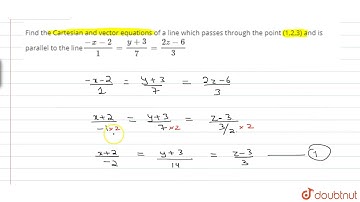 Find the Cartesian and vector equations of a line which passes through the point (1,2,3) and is
parallel to the line (-x-2)/1 = (y+3)/7 = (2z-6)/3
(-x-2)/1 = (y+3)/7 = (2z-6)/3
(x+2)/(-1×2) = (y+3)/(7×2) = (z-3)/(3/2 × 2)
(x+2)/-2 = (y+3)/14 = (z-3)/3 — 1
doubtnut